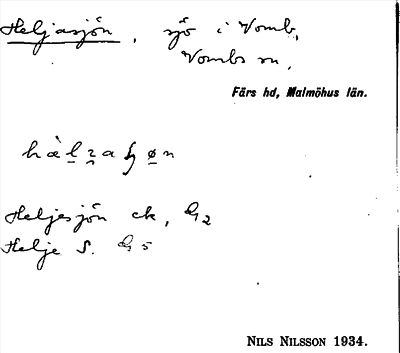 Heljasjön, sjö i Vomb,
Vombs sn,
Färs hd, Malmöhus län.
Heljesjön ek, G2
Helje S. G5
NILS NILSSON 1934.